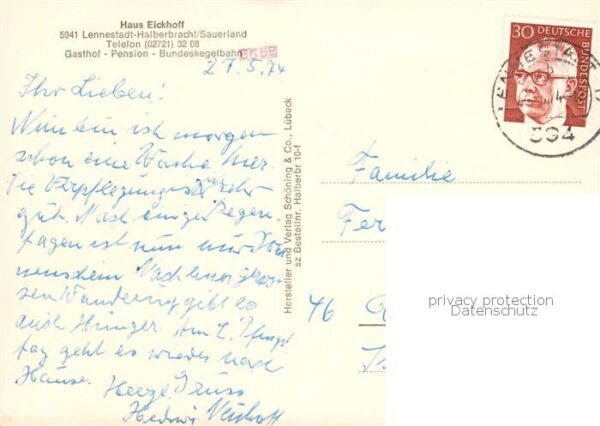 Haus Eickhoff
5941 Lennestadt-Halberbracht/Sauerland
Telefon (02721) 32 08
Gasthof - Pension - Bundeskegelbahn
27.5.74
Ihr Lieben!
Nun bin ich morgen
schon eine Woche hier.
Die Verpflegung ist sehr
gut. Nach einigen Regen-
tagen ist nun nur Son-
nenschein. Nach einer gros-
sen Wanderung gibt es
auch Hunger. Am 2. Pfingst
tag geht es wieder nach
Hause. Herzl. Gruss
Hedwig
Hersteller und Verlag Schöning & Co., Lübeck
sz Bestellnr. Halberbr 10-f
30 DEUTSCHE BUNDESPOST
LENNESTADT 1
594
Familie
Fer
46
privacy protection
Datenschutz